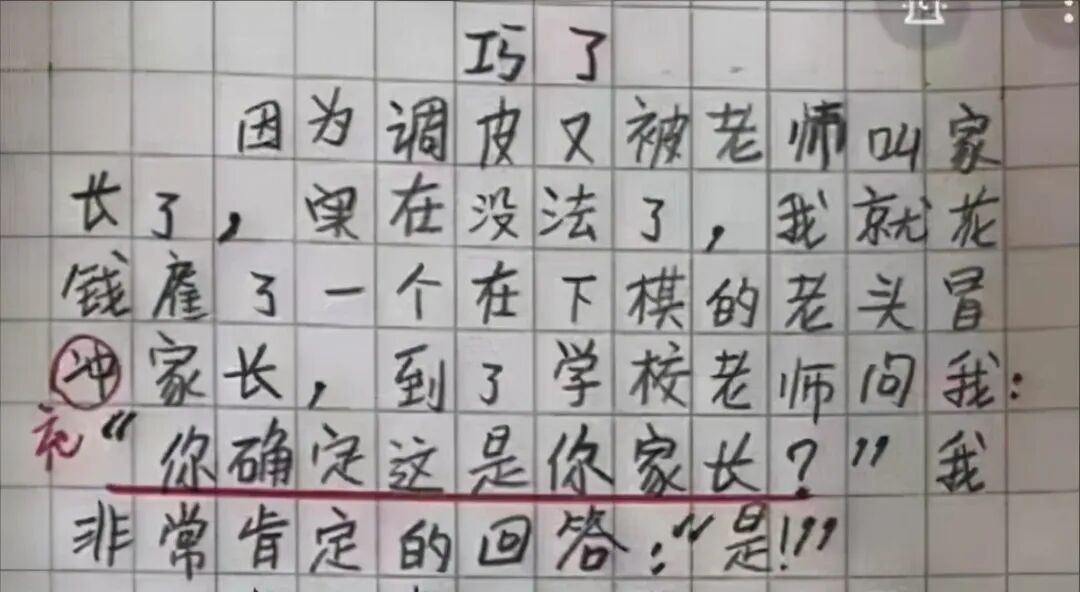 巧了
因为调皮又被老师叫家
长了，实在没法了，我就花
钱雇了一个在下棋的老头冒
冲家长，到了学校老师问我：
充“你确定这是你家长？”我
非常肯定的回答：“是！”